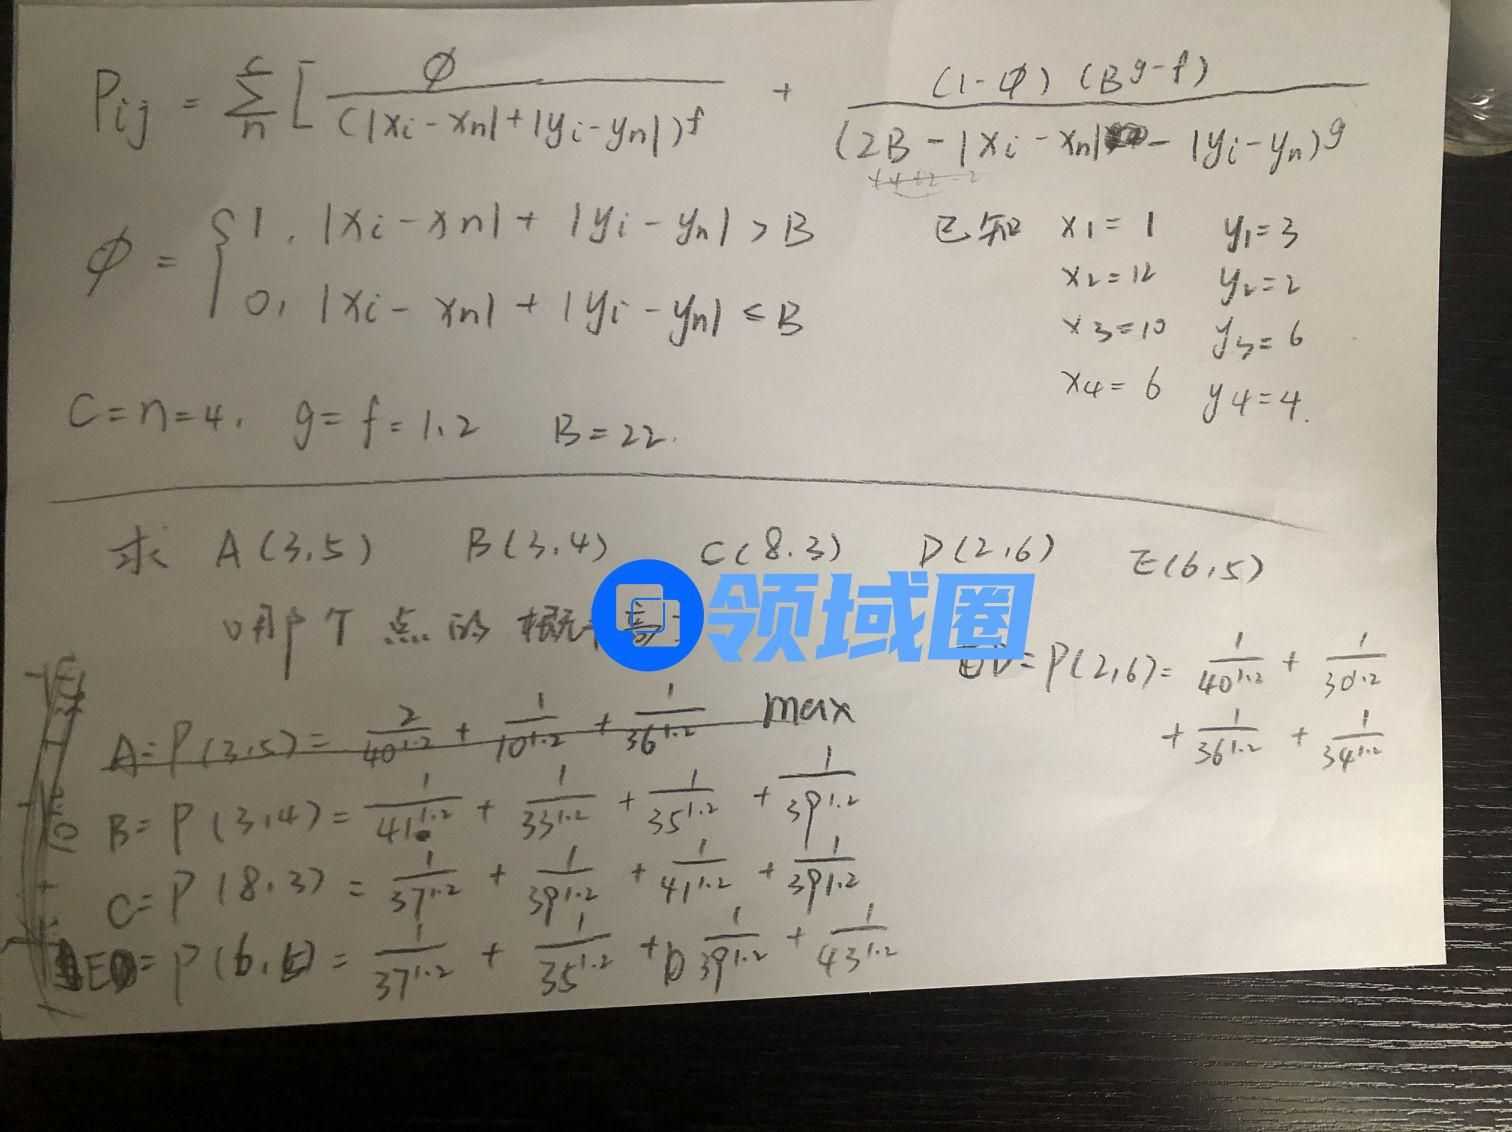 Pij = Σ c n [ φ / (|xi-xn|+|yi-yn|)^f + (1-φ)(B^g-f) / (2B-|xi-xn|-|yi-yn|)^g
φ = { 1, |xi-xn|+|yi-yn|>B
0, |xi-xn|+|yi-yn|≤B
已知 x1=1 y1=3
x2=12 y2=2
x3=10 y3=6
x4=6 y4=4.
C=n=4, g=f=1.2 B=22.
求 A(3.5) B(3,4) C(8.3) D(2,6) E(6,5)
哪个点的概率
领域圈
A=P(3,5)= 2/40^1.2 + 1/10^1.2 + 1/36^1.2 max
B=P(3,4)= 1/41^1.2 + 1/33^1.2 + 1/35^1.2 + 1/39^1.2
C=P(8.3)= 1/37^1.2 + 1/39^1.2 + 1/41^1.2 + 1/39^1.2
E=P(6,5)= 1/37^1.2 + 1/35^1.2 + 1/39^1.2 + 1/43^1.2
D=P(2,6)= 1/40^1.2 + 1/30^1.2
+ 1/36^1.2 + 1/34^1.2